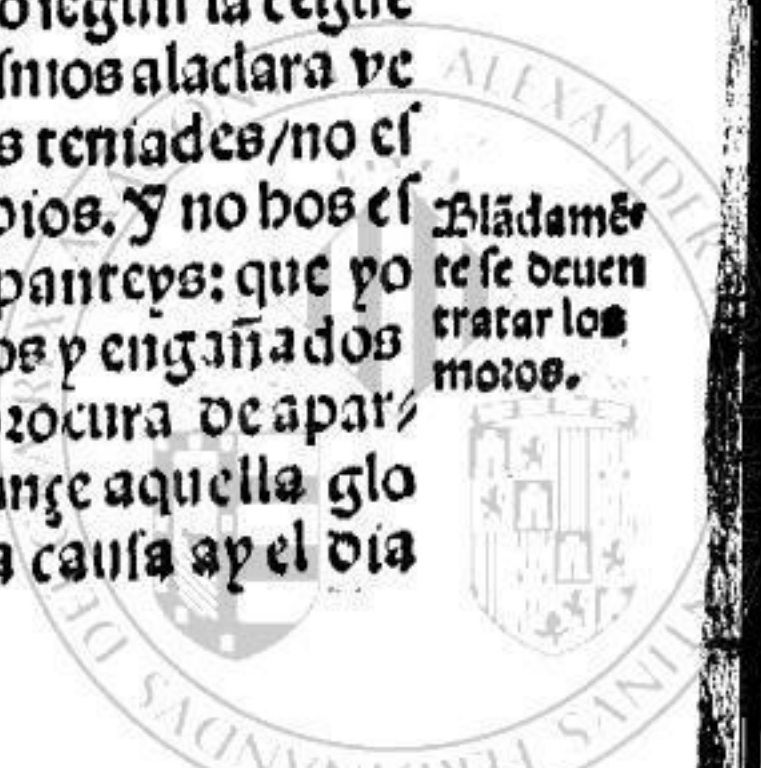 ſnios ala clara ve
s teniades/no eſ
dios. Y no hos eſ
panteys: que yo
os y engañados
procura de apar⸗
ançe aquella glo
a cauſa ay el dia
Blādamēt
te ſe deuen
tratar los
moros.
ALEXANDER